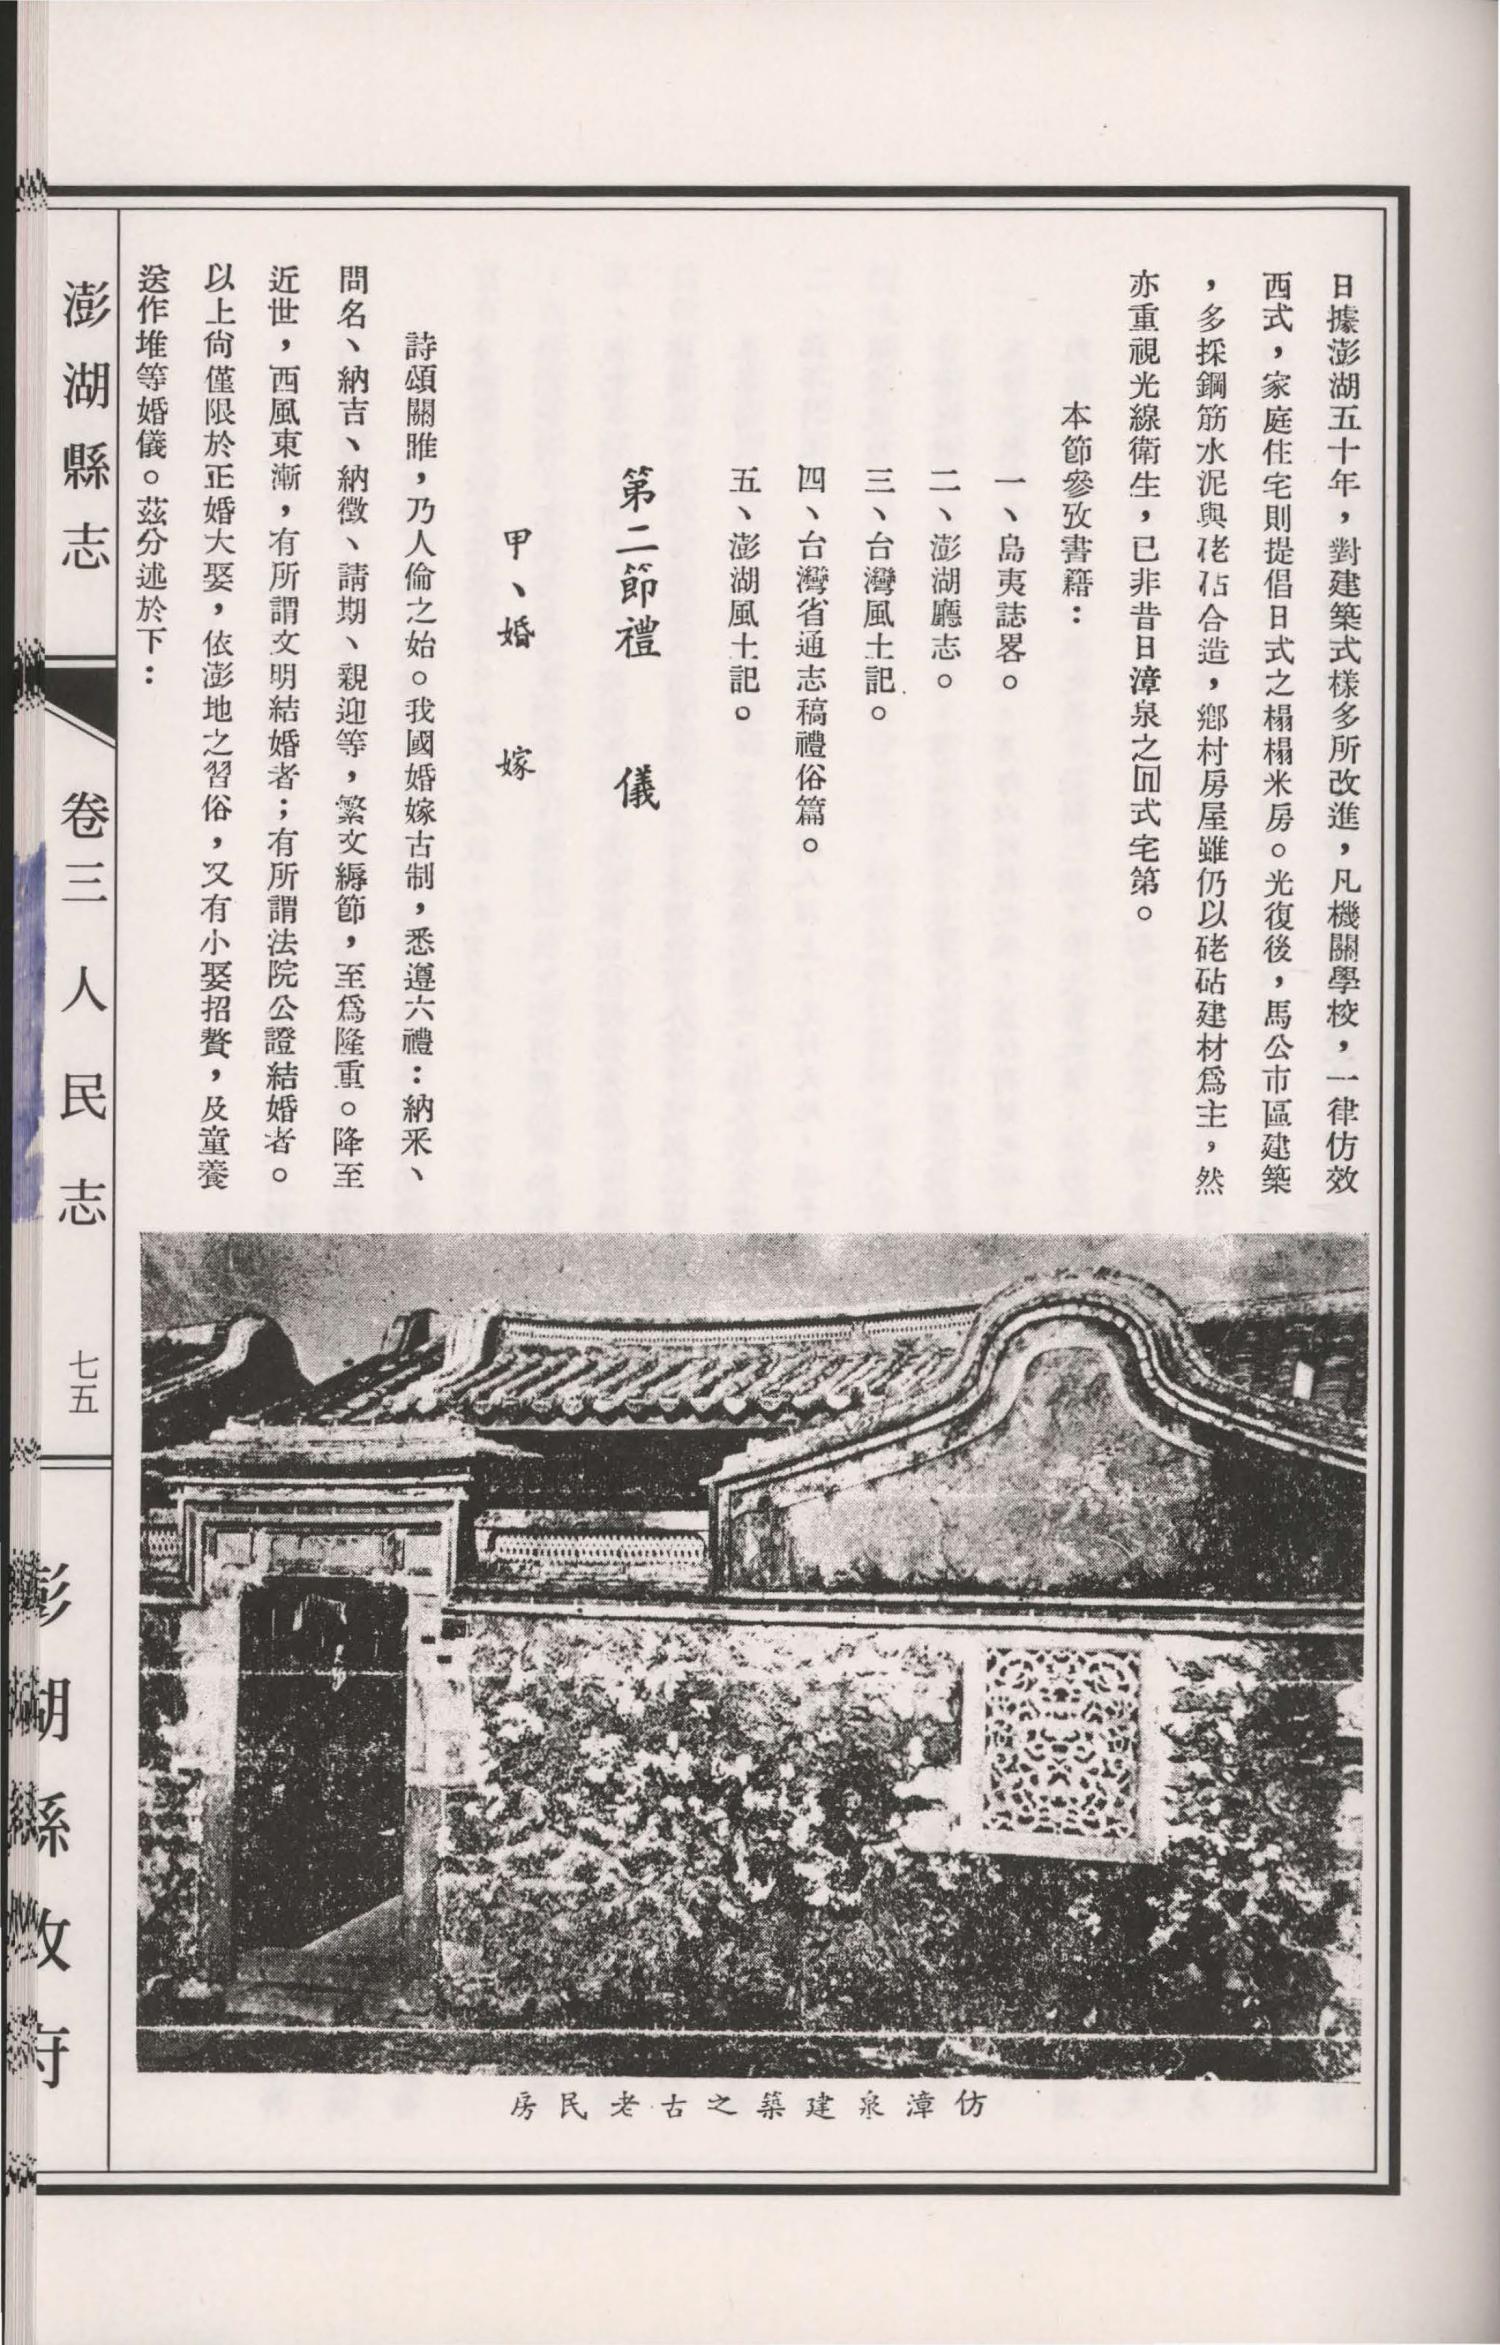 日據澎湖五十年，對建築式樣多所改進，凡機關學校，一律仿效
西式，家庭住宅則提倡日式之榻榻米房。光復後，馬公市區建築
，多採鋼筋水泥與硓𥑮合造，鄉村房屋雖仍以硓砧建材爲主，然
亦重視光線衛生，已非昔日漳泉之回式宅第。
本節參攷書籍：
一、島夷誌畧。
二、澎湖廳志。
三、台灣風土記。
四、台灣省通志稿禮俗篇。
五、澎湖風土記。
第二節禮　儀
甲、婚　嫁
詩頌關雎，乃人倫之始。我國婚嫁古制，悉遵六禮：納釆、
問名、納吉、納徵、請期、親迎等，繁文縟節，至爲隆重。降至
近世，西風東漸，有所謂文明結婚者；有所謂法院公證結婚者。
以上尙僅限於正婚大娶，依澎地之習俗，又有小娶招贅，及童養
送作堆等婚儀。茲分述於下：
仿漳泉建築之古老民房
澎湖縣志
卷三人民志
七五
澎湖縣政府